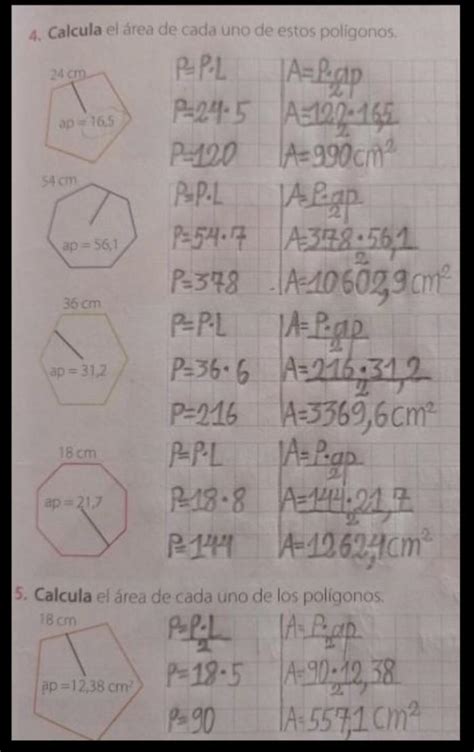 4. Calcula el área de cada uno de estos polígonos.
24 cm
ap = 16,5
P=P·L
P=24·5
P=120
A=P·ap
2
A=122·16,5
2
A=990cm²
54 cm
ap = 56,1
P=P·L
P=54·7
P=378
A=P·ap
2
A=378·56,1
2
A=10602,9cm²
36 cm
ap = 31,2
P=P·L
P=36·6
P=216
A=P·ap
2
A=216·31,2
2
A=3369,6cm²
18 cm
ap = 21,7
P=P·L
P=18·8
P=144
A=P·ap
2
A=144·21,7
2
A=1262,4cm²
5. Calcula el área de cada uno de los polígonos.
18 cm
ap =12,38 cm²
P=P·L
2
P=18·5
P=90
A=P·ap
2
A=90·12,38
2
A=557,1cm²